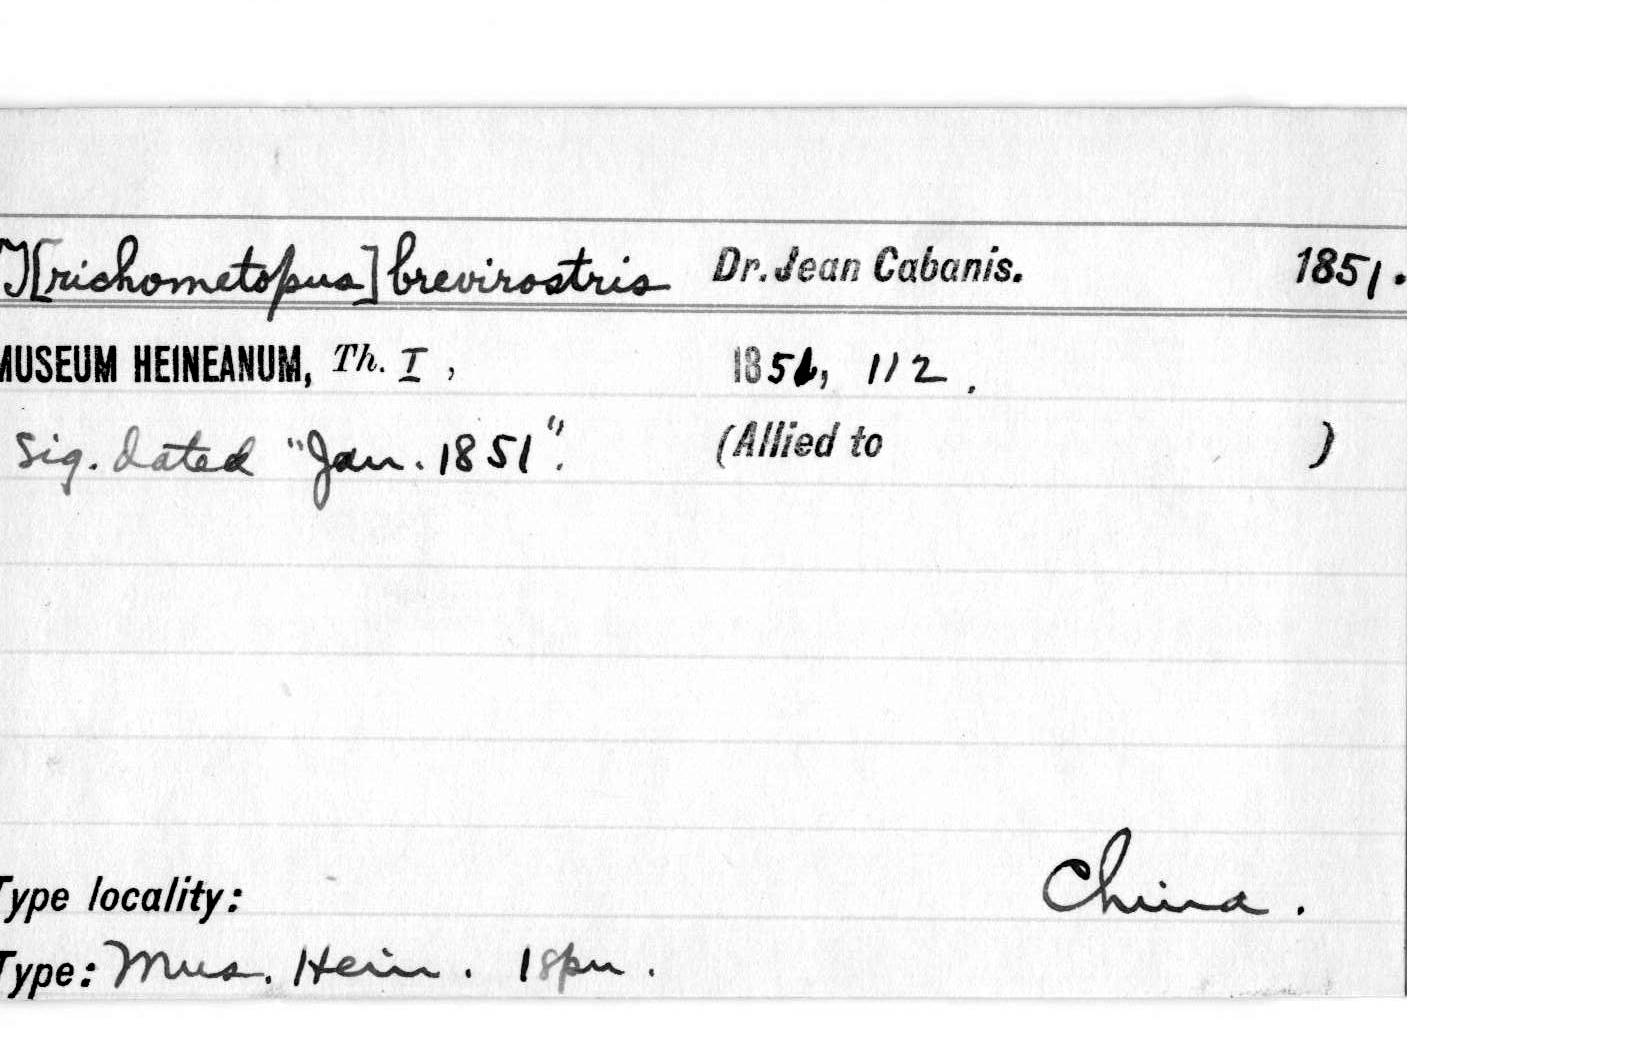 T[richometopus] brevirostris Dr. Jean Cabanis. 1851.
MUSEUM HEINEANUM, Th. I, 1851, 112.
Sig. dated "Jan. 1851".  (Allied to )
Type locality: China.
Type: Mus. Hein. 1 spn.